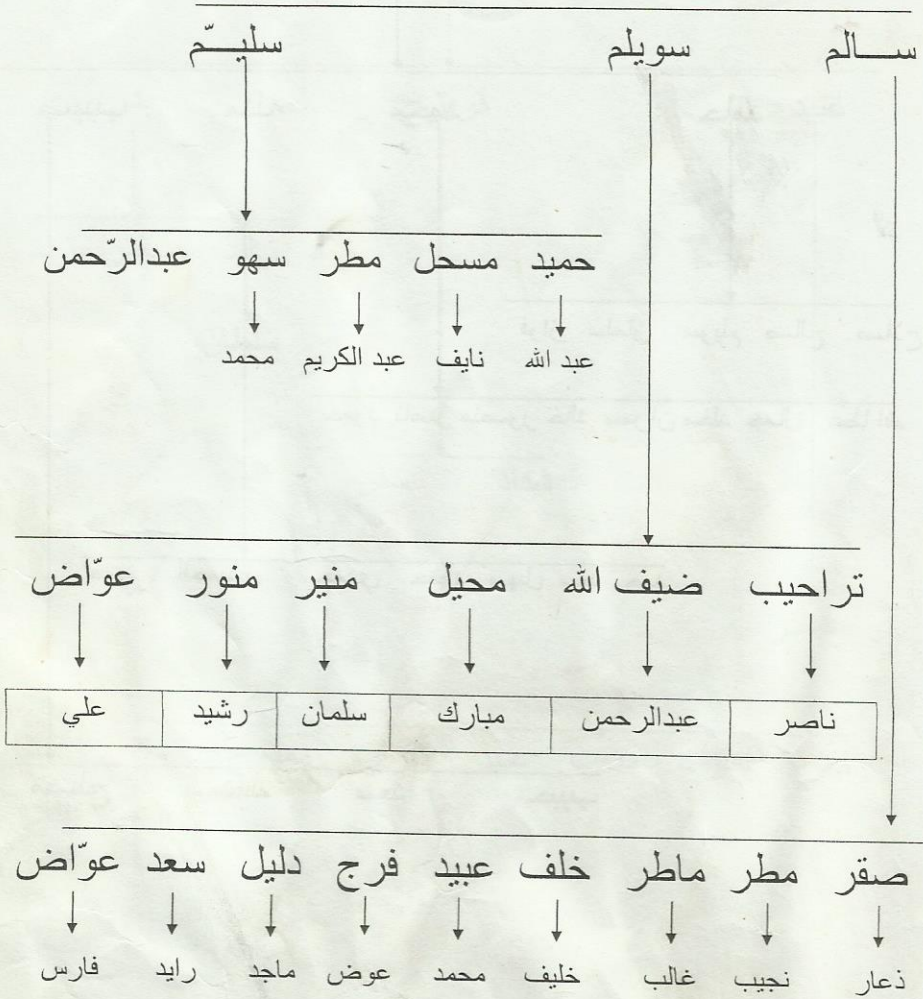 ســـالم سويلم سليـــّم
حميد مسحل مطر سهو عبدالرّحمن
عبد الله نايف عبد الكريم محمد
تراحيب ضيف الله محيل منير منور عوّاض
ناصر عبدالرحمن مبارك سلمان رشيد علي
صقر مطر ماطر خلف عبيد فرج دليل سعد عوّاض
ذعار نجيب غالب خليف محمد عوض ماجد رايد فارس